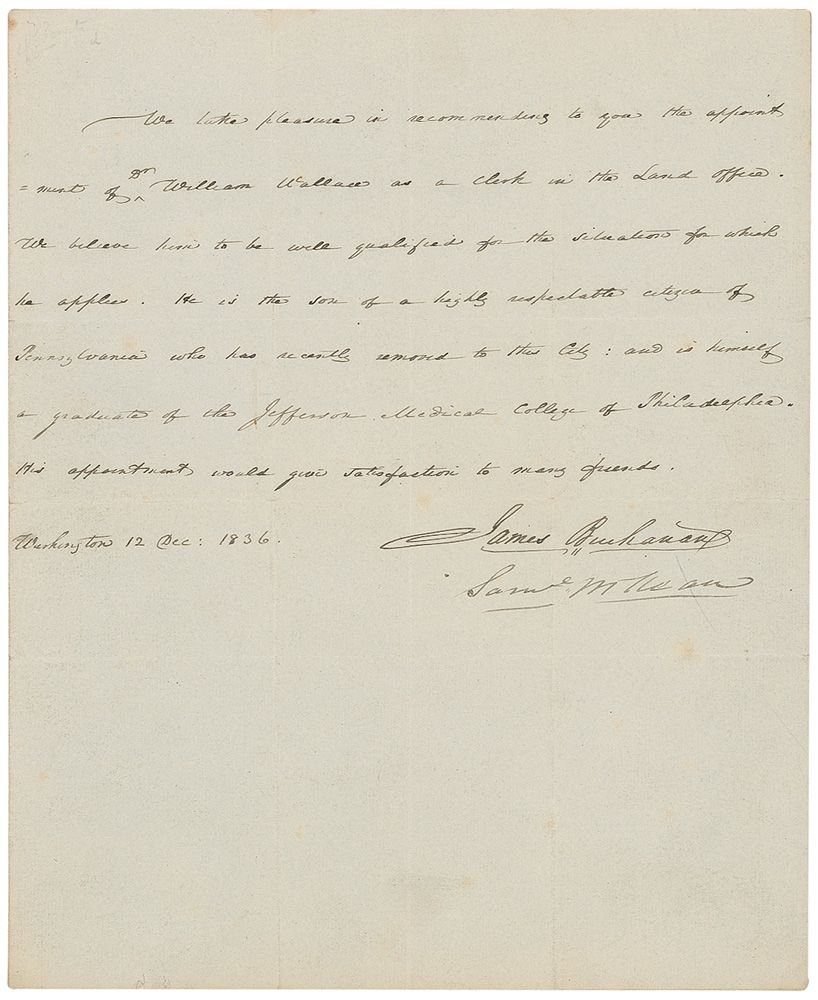 We take pleasure in recommending to you the appoint
=ment of Dr William Wallace as a Clerk in the Land office.
We believe him to be well qualified for the situation for which
he applies. He is the son of a highly respectable citizen of
Pennsylvania who has recently removed to this City: and is himself
a graduate of the Jefferson Medical College of Philadelphia.
His appointment would give satisfaction to many friends.
Washington 12 Dec: 1836.
James Buchanan
Saml. McKean